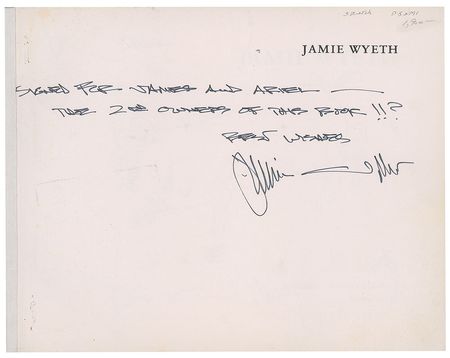 JAMIE WYETH
SIGNED FOR JAMES AND ARIEL —
THE 2ND OWNERS OF THIS BOOK !!?
BEST WISHES
Jamie Wyeth